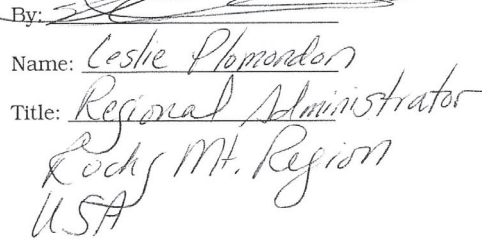 By:
Name: Leslie Plomondon
Title: Regional Administrator
Rocky Mt. Region
USA